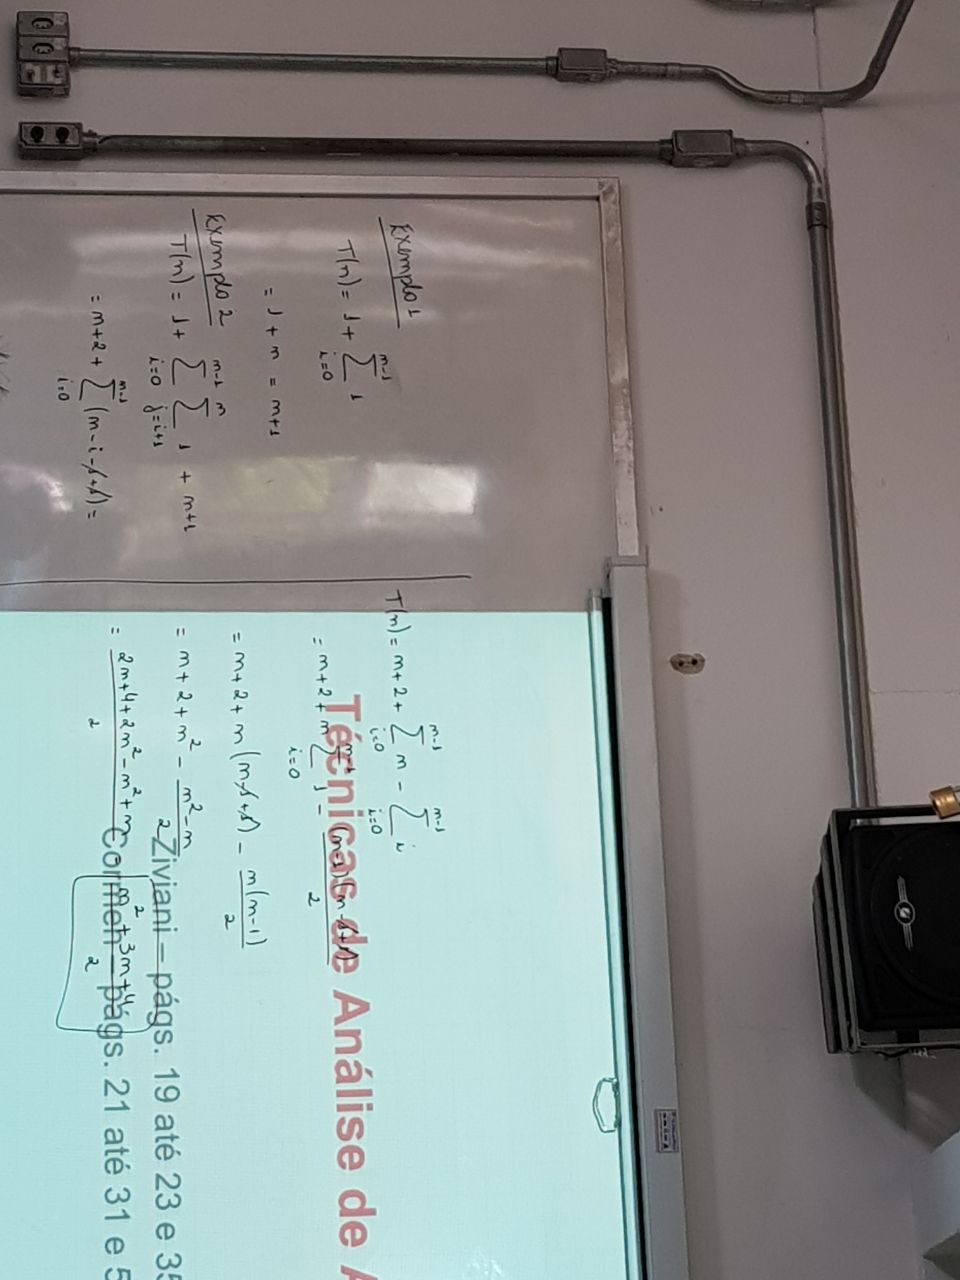 Exemplo 1
T(n) = 1 + ∑_{i=0}^{n-1} 1
= 1 + n = n+1
Exemplo 2
T(n) = 1 + ∑_{i=0}^{n-1} ∑_{j=i+1}^{n} 1 + n+1
= n+2 + ∑_{i=0}^{n-1} (n-i-1+1) =
T(n) = n+2 + ∑_{i=0}^{n-1} n - ∑_{i=0}^{n-1} i
= n+2 + n ∑_{i=0}^{n-1} 1 - (n-1)(n-1+1)/2
= n+2 + n(n-1+1) - n(n-1)/2
= n+2 + n² - (n²-n)/2
= (2n+4+2n²-n²+n)/2 = (n²+3n+4)/2
Técnicas de Análise de A
Ziviani – págs. 19 até 23 e 35
Cormen – págs. 21 até 31 e 5